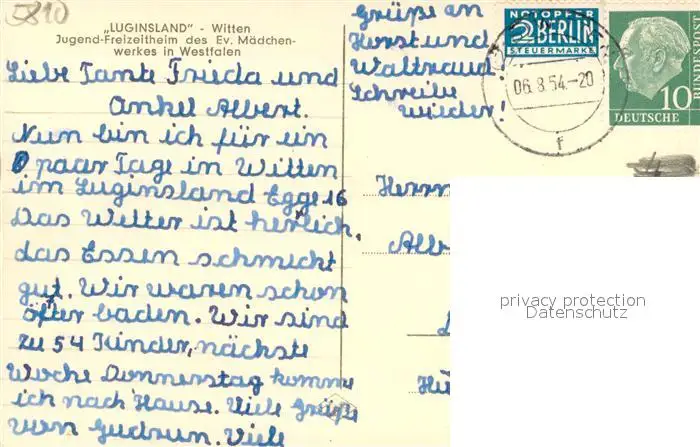 5810
„LUGINSLAND" - Witten
Jugend-Freizeitheim des Ev. Mädchen-
werkes in Westfalen
Liebe Tante Frieda und
Onkel Albert.
Nun bin ich für ein
paar Tage in Witten
im Luginsland Egge 16
Das Wetter ist herlich,
das Essen schmickt
gut. Wir waren schon
öfter baden. Wir sind
zu 54 Kinder, nächste
Woche Donnerstag komme
ich nach Hause. Viele Grüße
von Gudrun. Viele
Grüße an
Horst und
Waltraud
Schreibe
wieder!
NOTOPFER
2 BERLIN
STEUERMARKE
06.8.54.-20
f
10
DEUTSCHE
BUNDESPOST
Herrn
Alb
privacy protection
Datenschutz